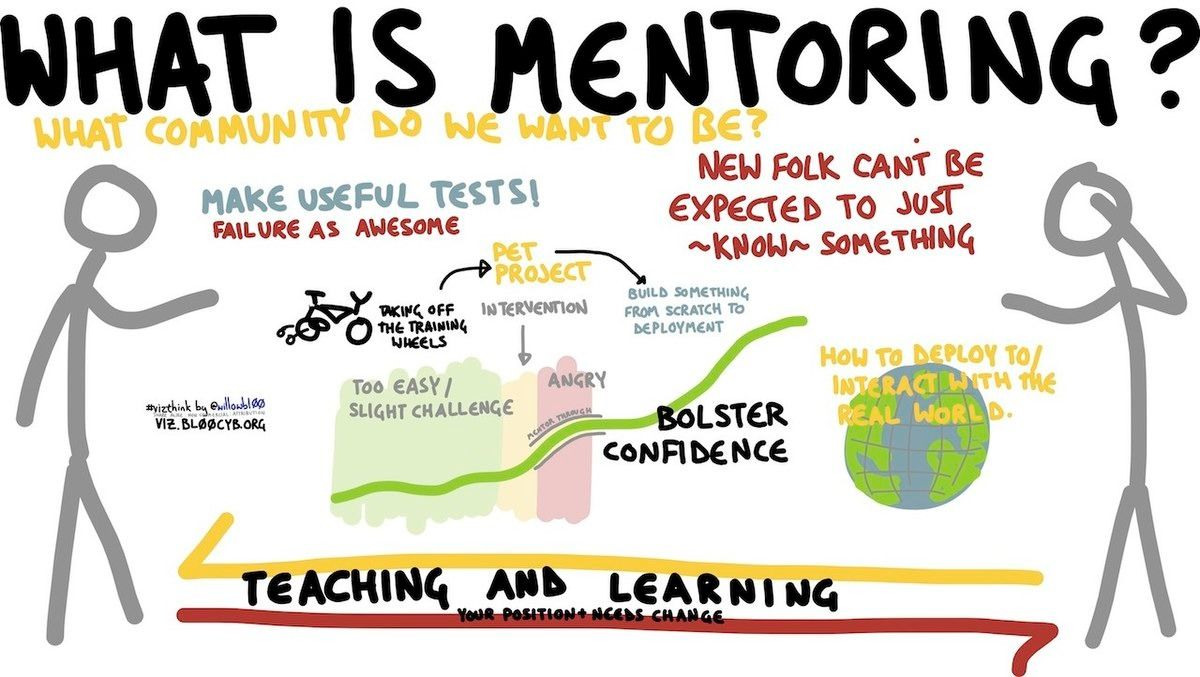 WHAT IS MENTORING?
WHAT COMMUNITY DO WE WANT TO BE?
MAKE USEFUL TESTS!
FAILURE AS AWESOME
NEW FOLK CAN'T BE
EXPECTED TO JUST
~KNOW~ SOMETHING
PET
PROJECT
TAKING OFF
THE TRAINING
WHEELS
INTERVENTION
BUILD SOMETHING
FROM SCRATCH TO
DEPLOYMENT
TOO EASY/
SLIGHT CHALLENGE
ANGRY
MENTOR THROUGH
BOLSTER
CONFIDENCE
HOW TO DEPLOY TO/
INTERACT WITH THE
REAL WORLD.
#vizthink by @willowbl00
SHARE ALIKE NON COMMERCIAL ATTRIBUTION
VIZ.BLØØCYB.ORG
TEACHING AND LEARNING
YOUR POSITION + NEEDS CHANGE